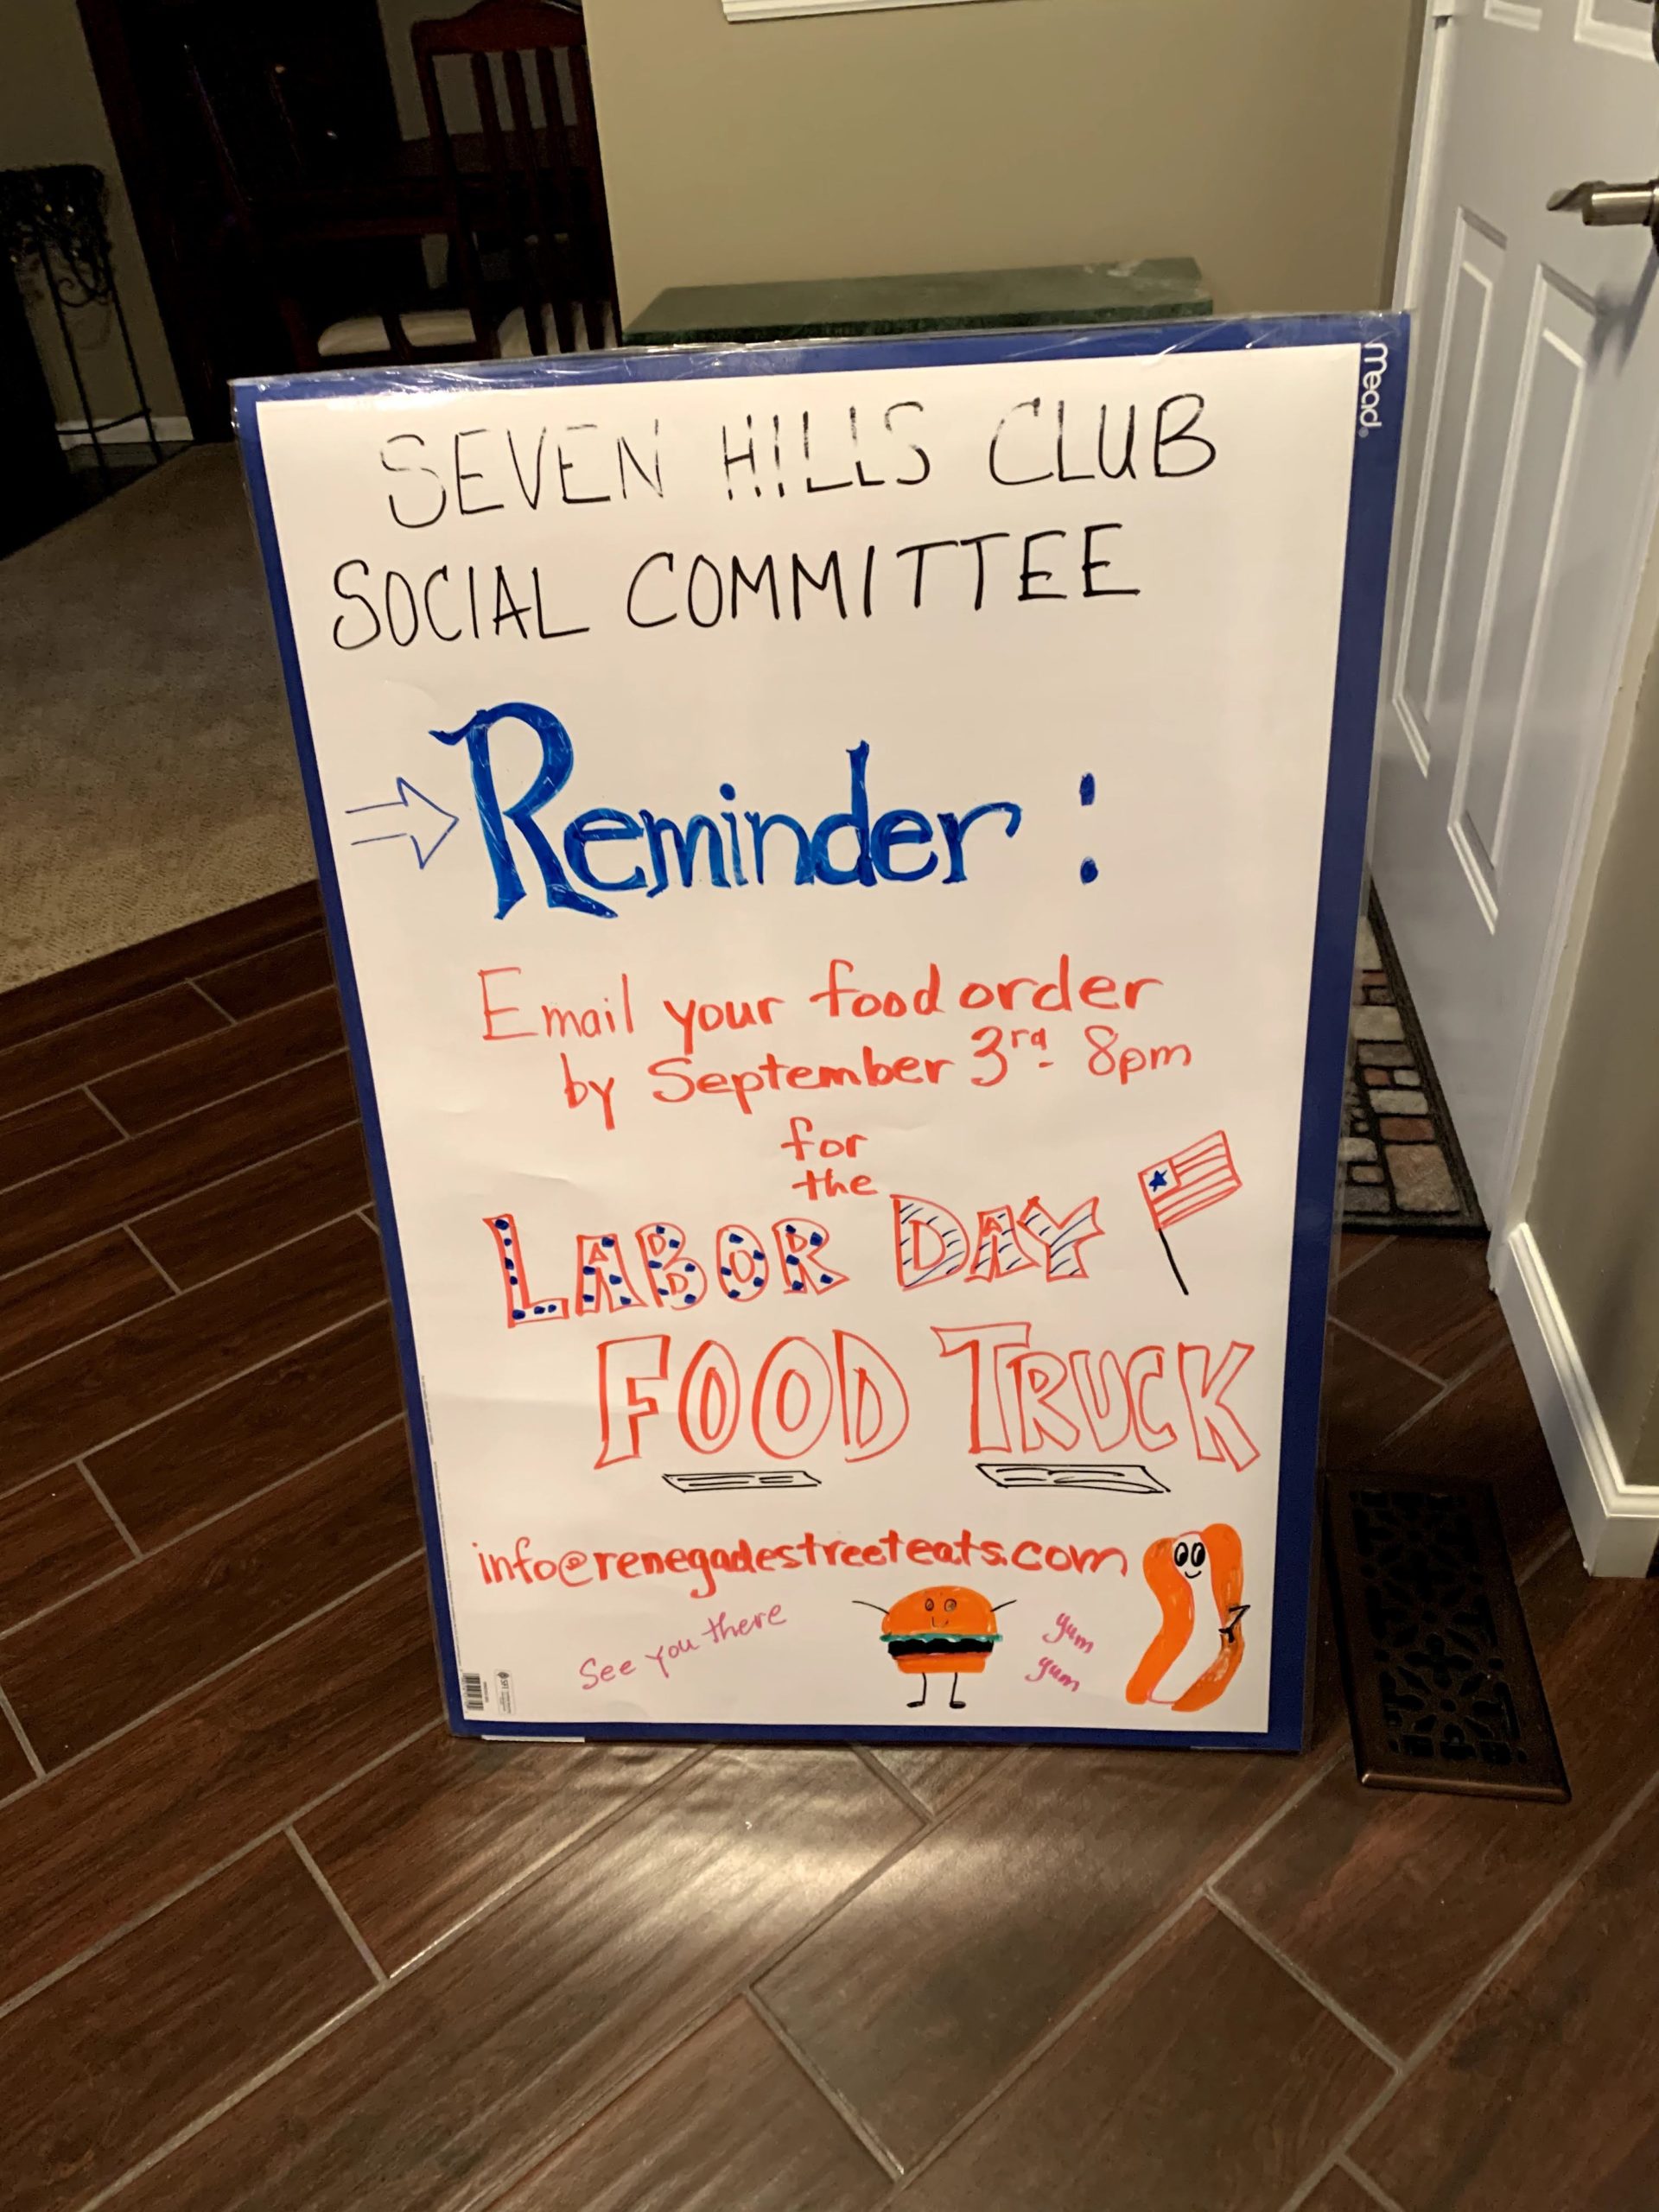 mead
SEVEN HILLS CLUB
SOCIAL COMMITTEE
Reminder:
Email your food order
by September 3rd 8pm
for
the
LABOR DAY
FOOD TRUCK
info@renegadestreeteats.com
See you there
yum
yum